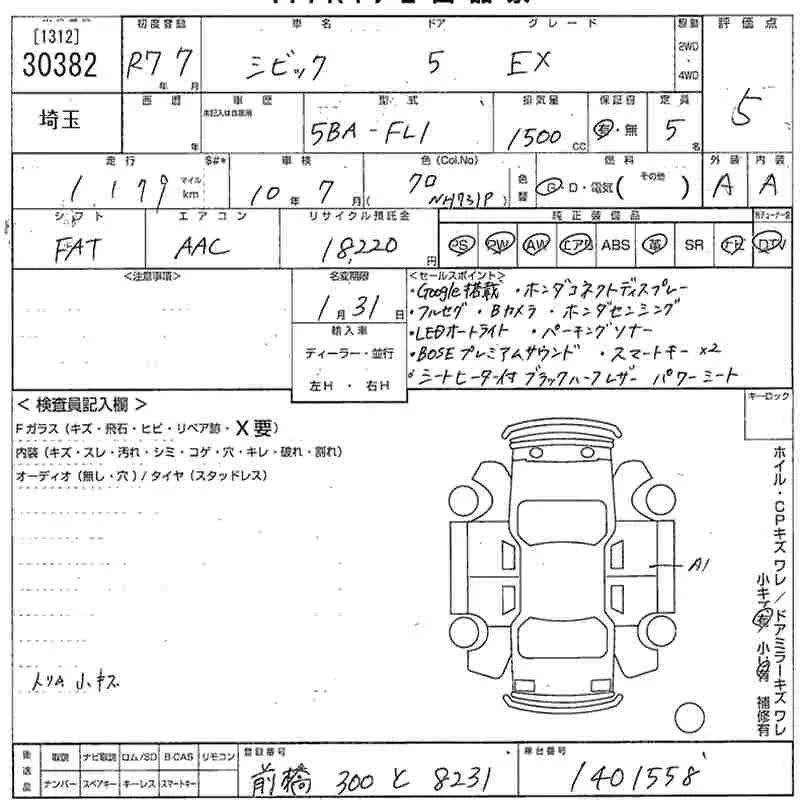 [1312]
30382
初度登録
R7 7
年 月
車名
シビック
ドア
5
グレード
EX
駆動
2WD
・
4WD
評価点
5
埼玉
西暦
年
車歴
未記入は自家用
型式
5BA-FL1
排気量
1500 CC
保証書
有・無
定員
5 名
走行
$#*
1,179 マイル km
車検
10年 7月
色(Col.No)
70
(NH731P)
色替
燃料
G・D・電気( その他 )
外装
A
内装
A
シフト
FAT
エアコン
AAC
リサイクル預託金
18,220円
純正装備品
PS PW AW エアB ABS 革 SR ナビ DTV
<注意事項>
名変期限
1月31日
輸入車
ディーラー・並行
左H ・ 右H
<セールスポイント>
・Google搭載 ・ホンダコネクトディスプレー
・フルセグ・Bカメラ・ホンダセンシング
・LEDオートライト ・パーキングソナー
・BOSEプレミアムサウンド ・スマートキー×2
・シートヒーター付ブラックハーフレザー パワーシート
<検査員記入欄>
Fガラス(キズ・飛石・ヒビ・リペア跡・X要)
内装(キズ・スレ・汚れ・シミ・コゲ・穴・キレ・破れ・割れ)
オーディオ(無し・穴)/タイヤ(スタッドレス)
トリム 小キズ
キーロック
A1
ホイル・CPキズ ワレ/ドアミラーキズ ワレ
小キズ有 小凹有 補修有
後送品
取説 ナビ取説 ロム/SD B-CAS リモコン
ナンバー スペアキー キーレス スマートキー
登録番号
前橋 300 と 8231
車台番号
1401558